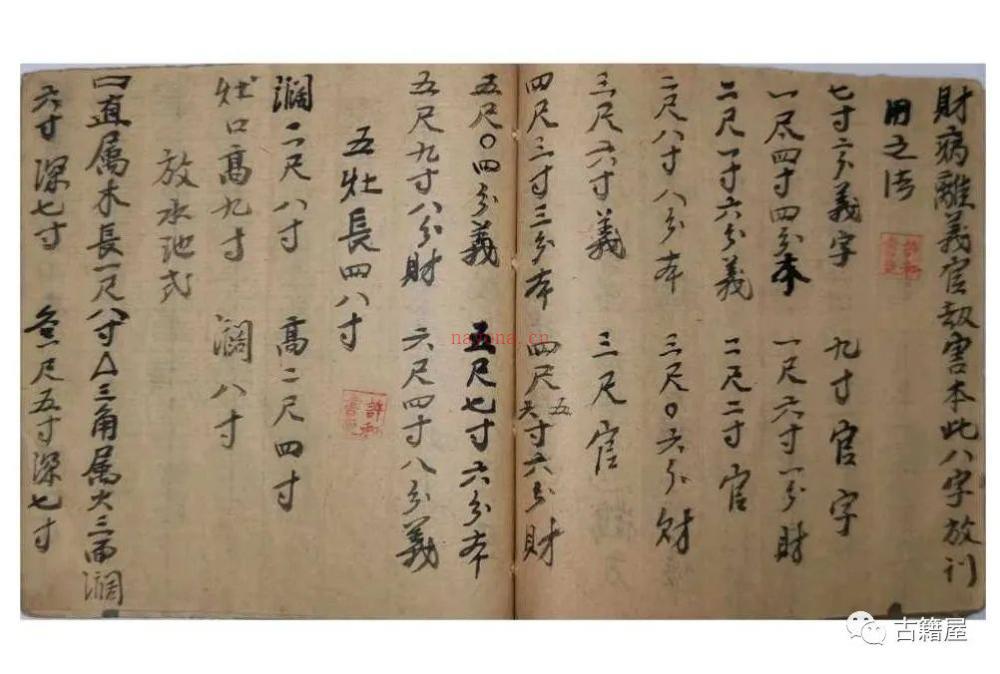 財病離義官刼害本此八字放刋
用之法
七寸六分義字 九寸官字
一尺四寸四分本 一尺六寸一分財
二尺一寸六分義 二尺二寸官
二尺八寸八分本 三尺〇六分財
三尺六寸義 三尺官
四尺三寸三分本 四尺五寸六分財
五尺〇四分義 五尺七寸六分本
五尺九寸八分財 六尺四寸八分義
五灶長四八寸
濶二尺八寸 高二尺四寸
灶口高九寸 濶八寸
放水池式
口直属木長一尺八寸△三角属火三面濶
六寸深七寸 尺五寸深七寸
許和
nayona.cn
古籍屋